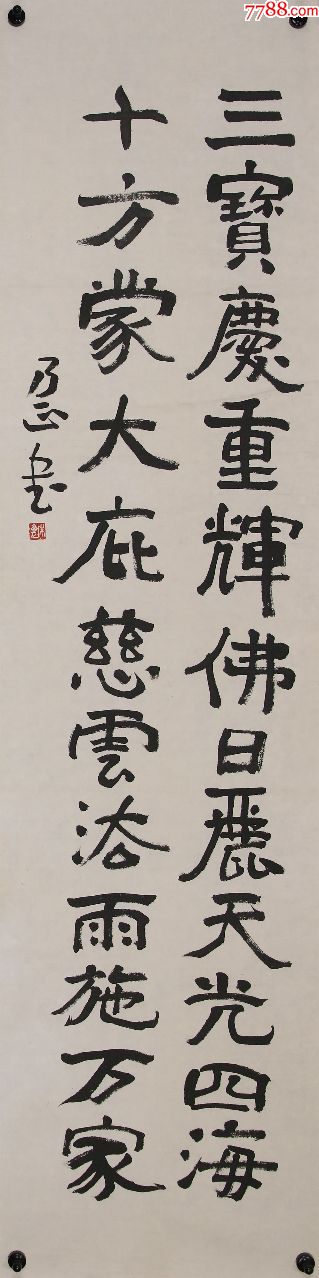 7788.com
三寶慶重輝佛日麗天光四海
十方蒙大庇慈雲法雨施万家
乃正书